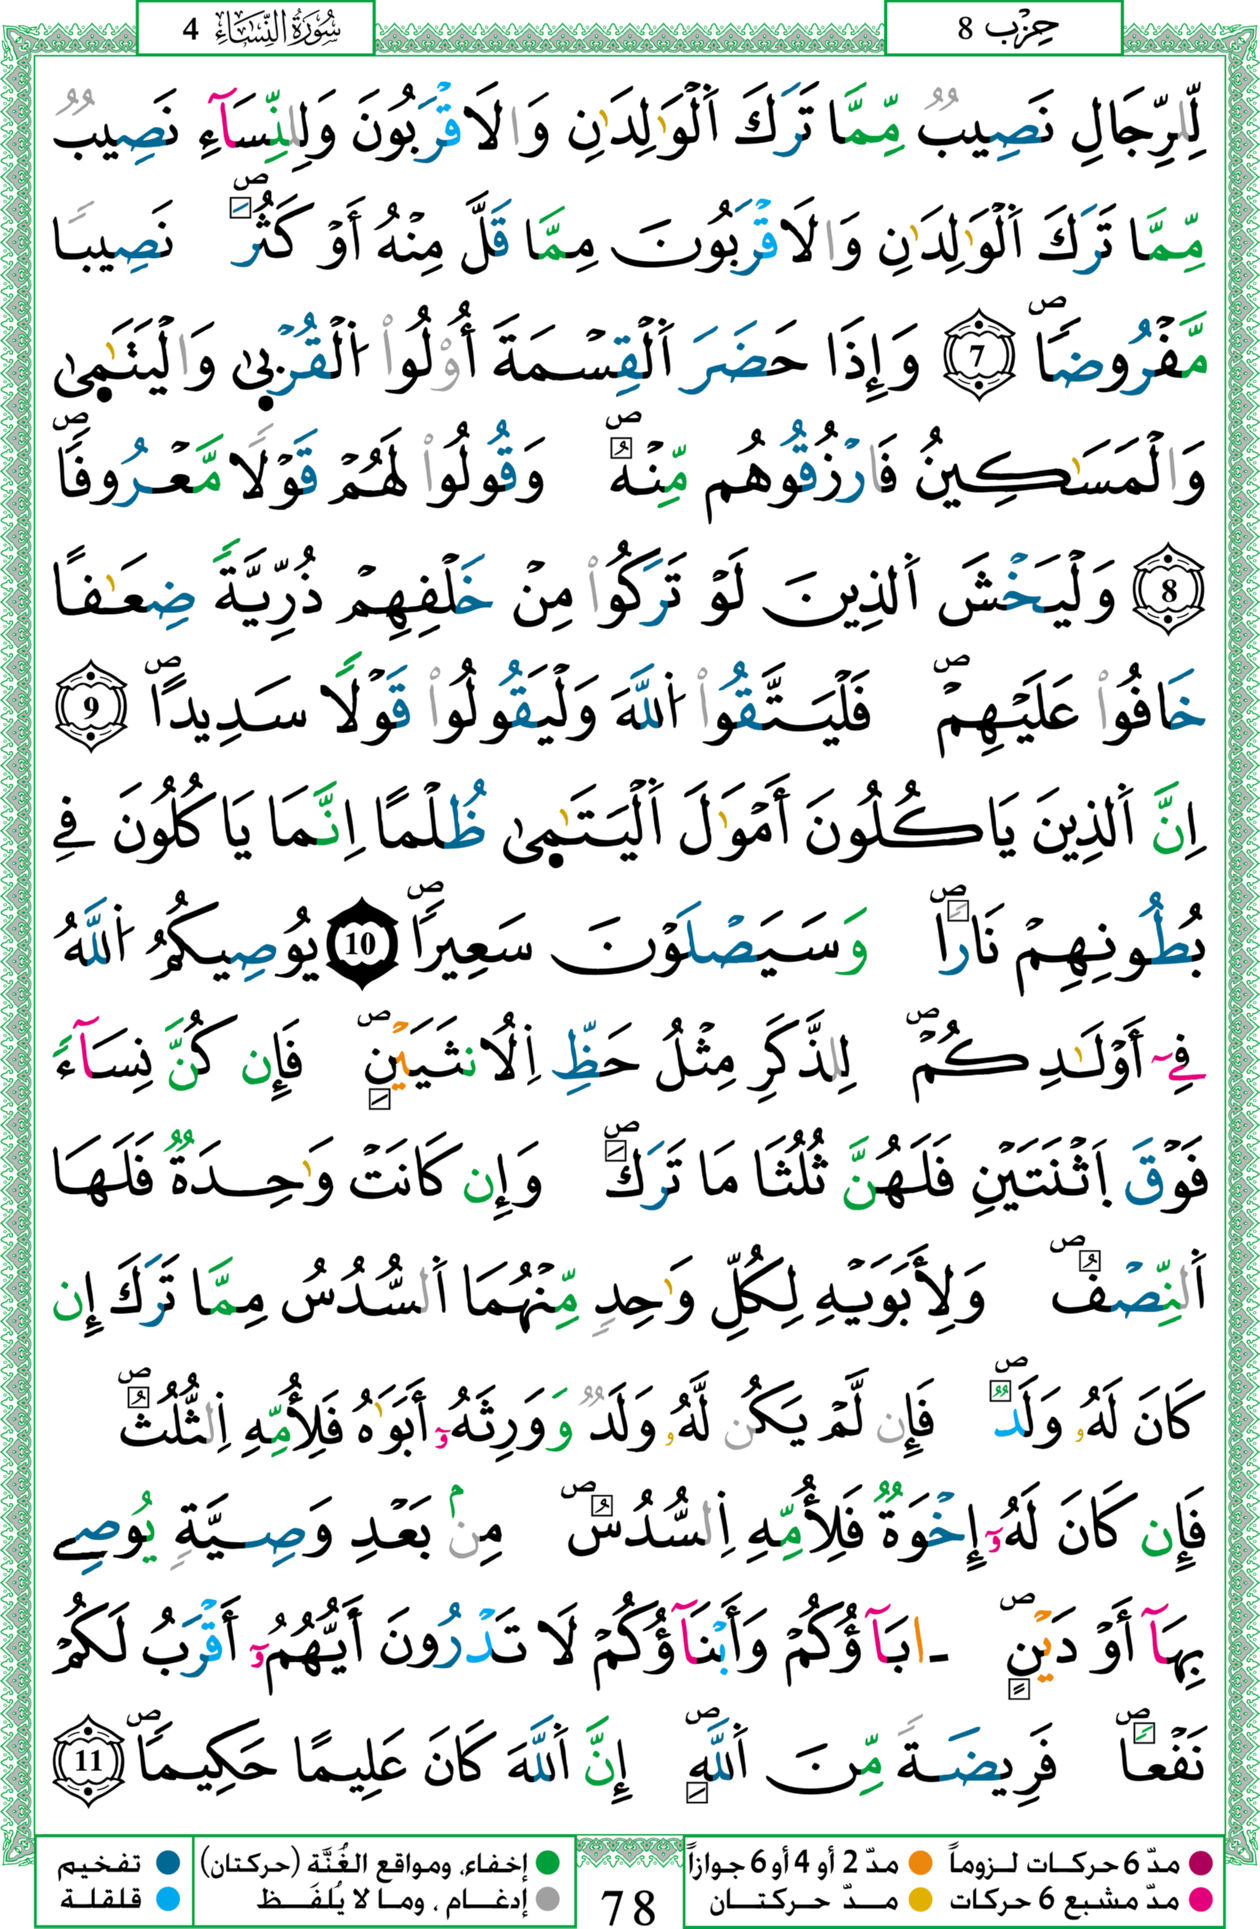 سُورَةُ النِّسَاءِ 4
حِزْب 8
لِّلرِّجَالِ نَصِيبٌ مِّمَّا تَرَكَ اَلْوَٰلِدَٰنِ وَالَاقْرَبُونَ وَلِلنِّسَآءِ نَصِيبٌ
مِّمَّا تَرَكَ اَلْوَٰلِدَٰنِ وَالَاقْرَبُونَ مِمَّا قَلَّ مِنْهُ أَوْ كَثُرَ ص نَصِيبًا
مَّفْرُوضًا ص 7 وَإِذَا حَضَرَ اَلْقِسْمَةَ أُوْلُواْ اُلْقُرْب۪ىٰ وَالْيَتَٰم۪ىٰ
وَالْمَسَٰكِينُ فَارْزُقُوهُم مِّنْهُ ص وَقُولُواْ لَهُمْ قَوْلًا مَّعْرُوفًا ص
8 وَلْيَخْشَ اَلذِينَ لَوْ تَرَكُواْ مِنْ خَلْفِهِمْ ذُرِّيَّةً ضِعَٰفًا
خَافُواْ عَلَيْهِمْ ص فَلْيَتَّقُواْ اُللَّهَ وَلْيَقُولُواْ قَوْلًا سَدِيدًا ص 9
اِنَّ اَلذِينَ يَاكُلُونَ أَمْوَٰلَ اَلْيَتَٰم۪ىٰ ظُلْمًا اِنَّمَا يَاكُلُونَ فِے
بُطُونِهِمْ نَارًا ص وَسَيَصْلَوْنَ سَعِيرًا ص 10 يُوصِيكُمُ اُللَّهُ
فِےٓ أَوْلَٰدِكُمْ ص لِلذَّكَرِ مِثْلُ حَظِّ اِلُانثَيَيْنِ ص فَإِن كُنَّ نِسَآءً
فَوْقَ اَثْنَتَيْنِ فَلَهُنَّ ثُلُثَا مَا تَرَكَ ص وَإِن كَانَتْ وَٰحِدَةٌ فَلَهَا
اَلنِّصْفُ ص وَلِأَبَوَيْهِ لِكُلِّ وَٰحِدٍ مِّنْهُمَا اَلسُّدُسُ مِمَّا تَرَكَ إِن
كَانَ لَهُۥ وَلَدٌ ص فَإِن لَّمْ يَكُن لَّهُۥ وَلَدٌ وَوَرِثَهُۥٓ أَبَوَٰهُ فَلِأُمِّهِ اِلثُّلُثُ ص
فَإِن كَانَ لَهُۥٓ إِخْوَةٌ فَلِأُمِّهِ اِلسُّدُسُ ص مِنۢ بَعْدِ وَصِيَّةٍ يُوصِے
بِهَآ أَوْ دَيْنٍ ص ـابَآؤُكُمْ وَأَبْنَآؤُكُمْ لَا تَدْرُونَ أَيُّهُمُۥٓ أَقْرَبُ لَكُمْ
نَفْعًا ص فَرِيضَةً مِّنَ اَللَّهِ ص إِنَّ اَللَّهَ كَانَ عَلِيمًا حَكِيمًا ص 11
مدّ 6 حركات لـزوماً مدّ 2 أو 4 أو 6 جوازاً
مدّ مشبع 6 حركات مـدّ حركتـان
78
إخفاء، ومواقع الغُنَّة (حركتان) تفخيم
إدغـام ، ومـا لا يُلفَـظ قلقلة